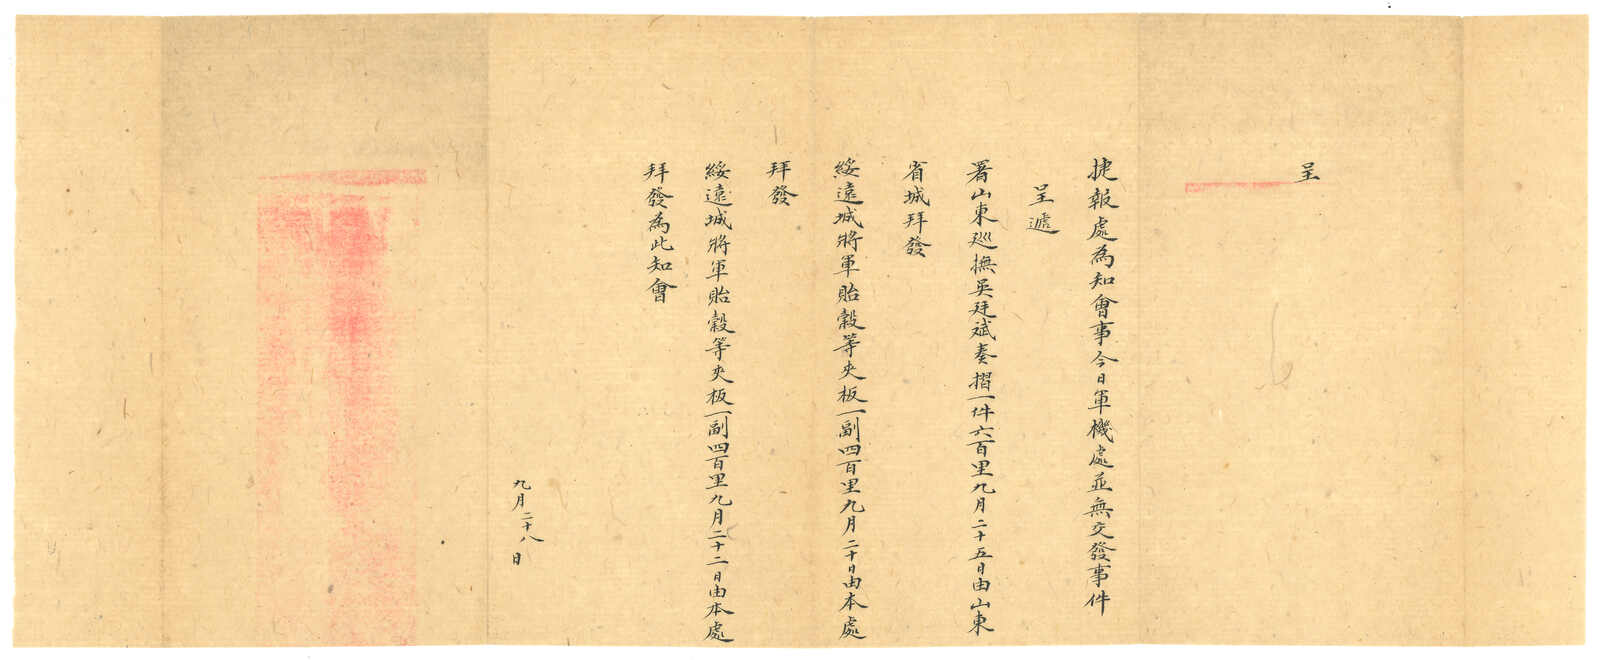 呈
捷報處為知會事今日軍機處並無交發事件
呈遞
署山東巡撫吳廷斌奏摺一件六百里九月二十五日由山東
省城拜發
綏遠城將軍貽穀等夾板一副四百里九月二十日由本處
拜發
綏遠城將軍貽穀等夾板一副四百里九月二十二日由本處
拜發為此知會
九月二十八日